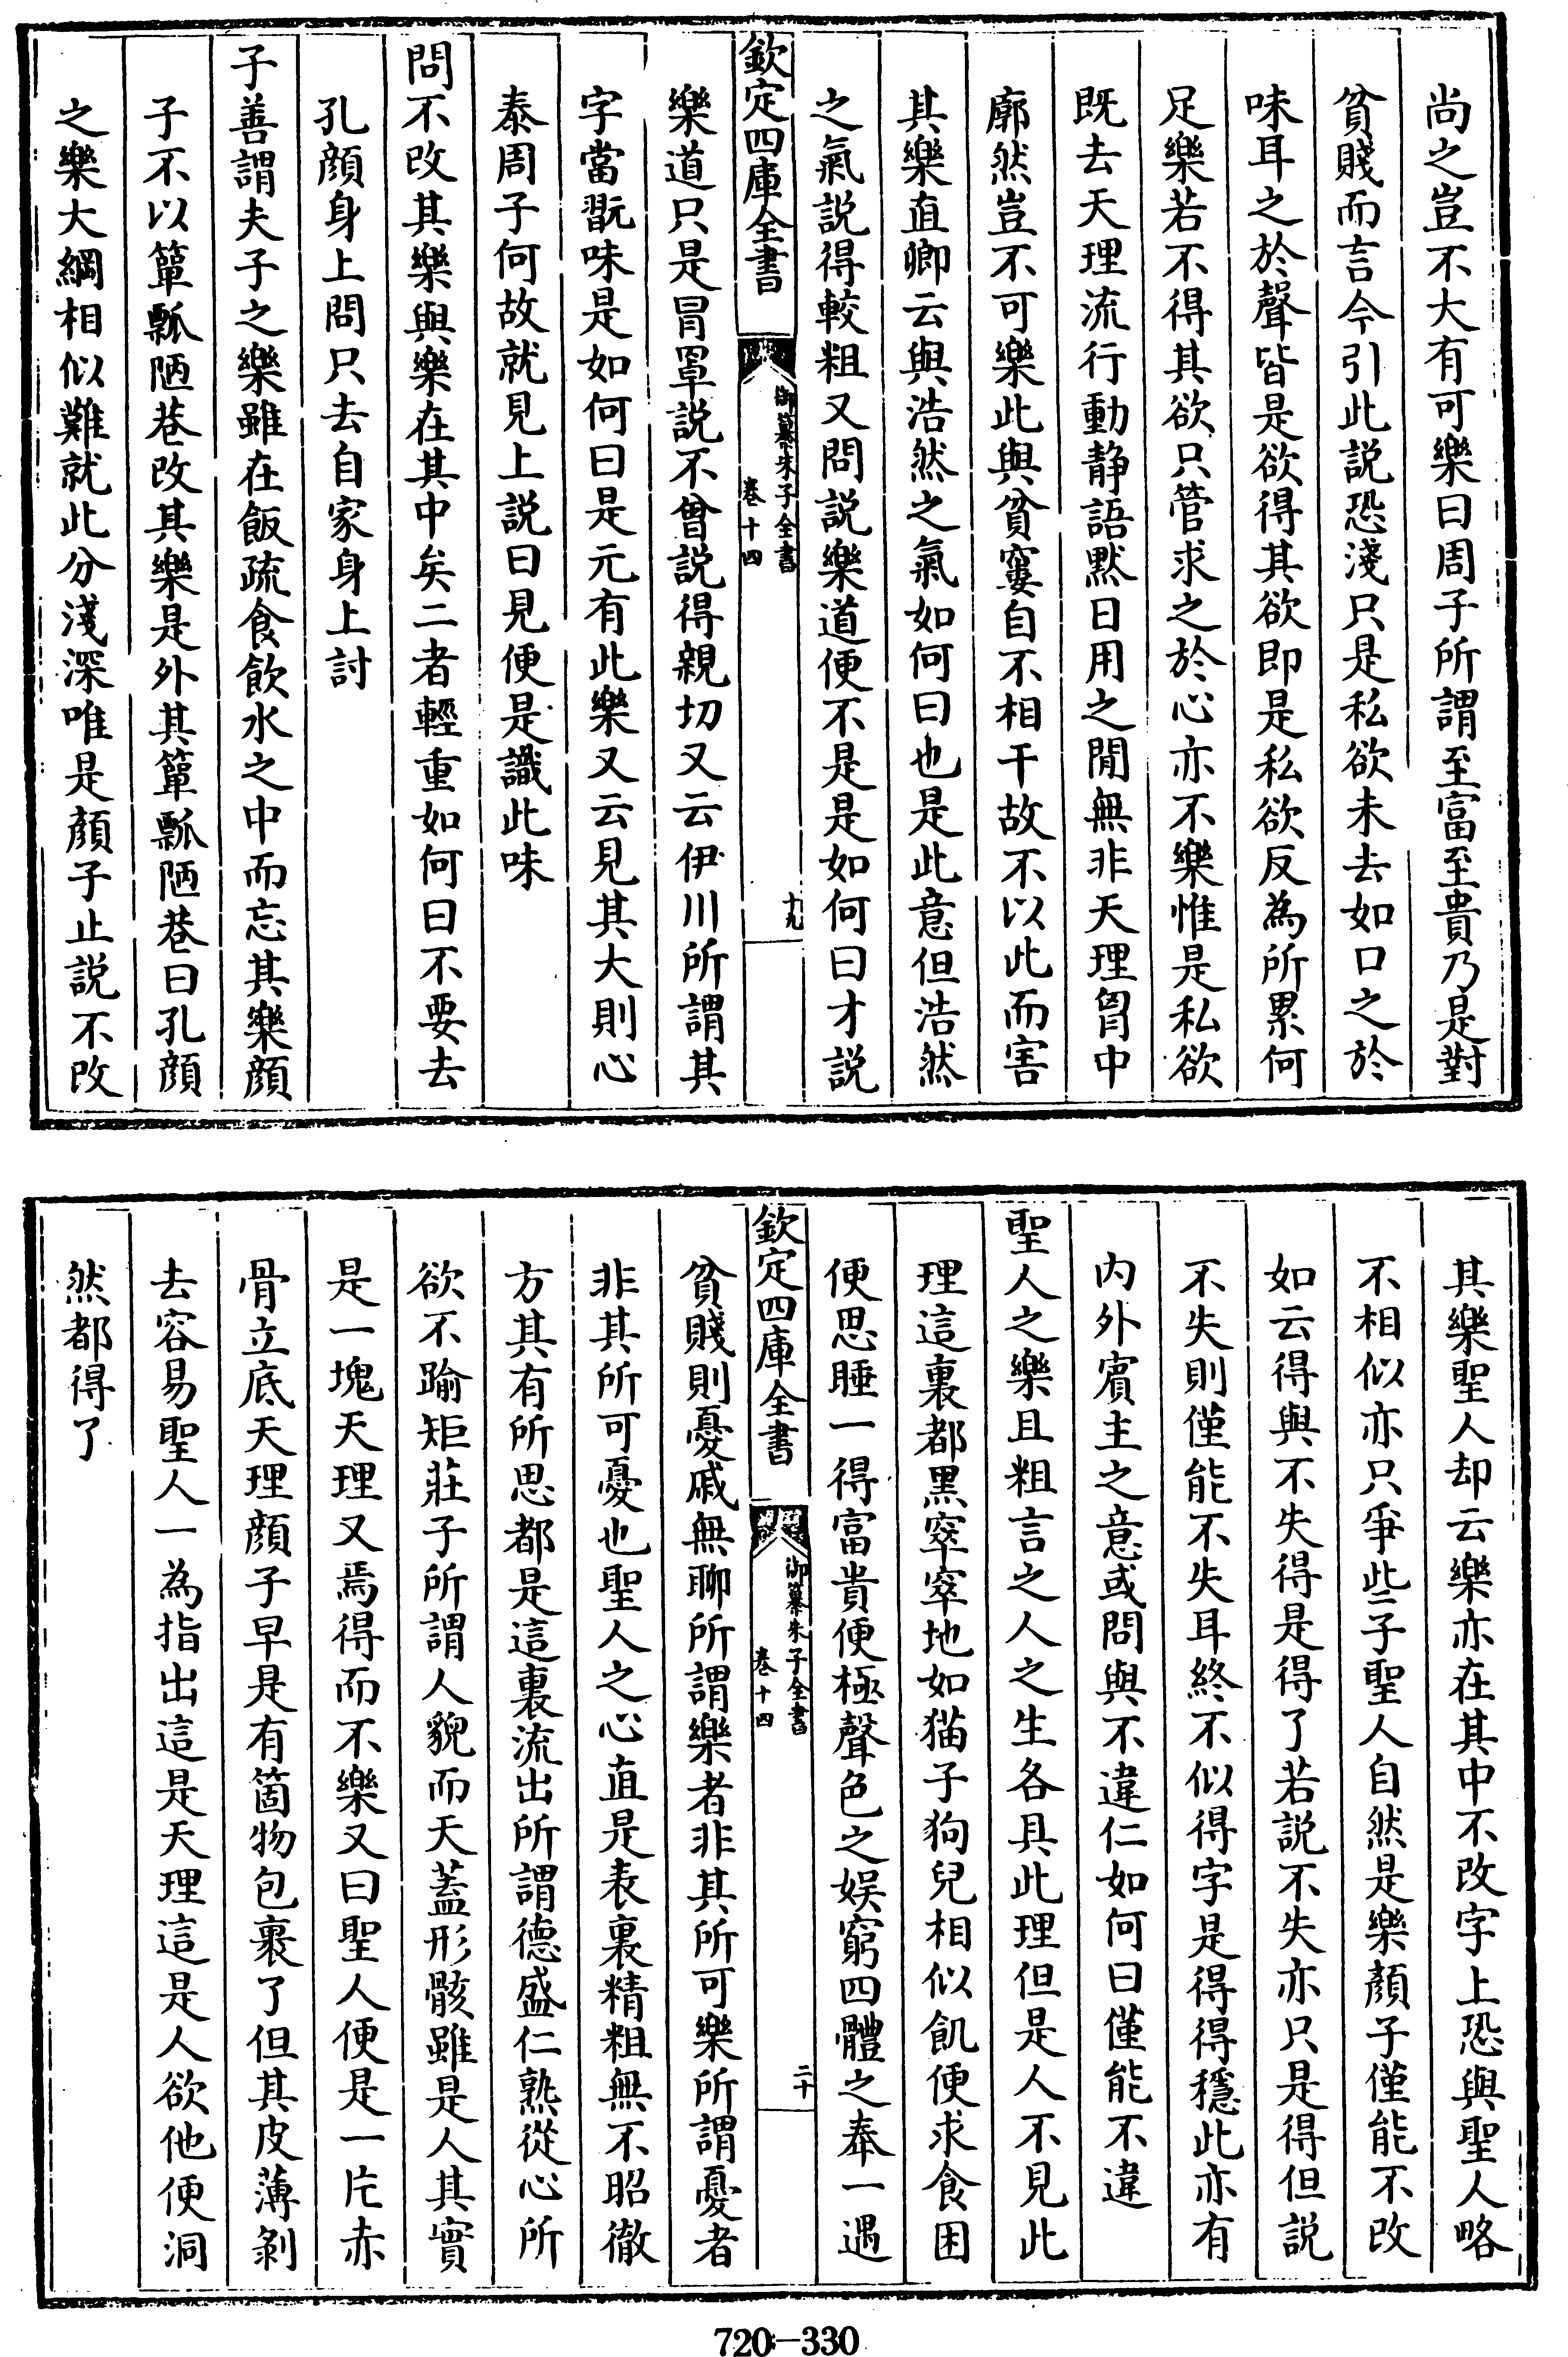 尚之豈不大有可樂曰周子所謂至富至貴乃是對
貧賤而言今引此説恐淺只是私欲未去如口之於
味耳之於聲皆是欲得其欲即是私欲反為所累何
足樂若不得其欲只管求之於心亦不樂惟是私欲
既去天理流行動静語黙日用之閒無非天理胷中
廓然豈不可樂此與貧窶自不相干故不以此而害
其樂直卿云與浩然之氣如何曰也是此意但浩然
之氣説得較粗又問説樂道便不是是如何曰才説
欽定四庫全書
御纂朱子全書
卷十四
十九
樂道只是冒罩説不曾説得親切又云伊川所謂其
字當翫味是如何曰是元有此樂又云見其大則心
泰周子何故就見上説曰見便是識此味
問不改其樂與樂在其中矣二者輕重如何曰不要去
孔顔身上問只去自家身上討
子善謂夫子之樂雖在飯疏食飲水之中而忘其樂顔
子不以簞瓢陋巷改其樂是外其簞瓢陋巷曰孔顔
之樂大綱相似難就此分淺深唯是顔子止説不改
其樂聖人却云樂亦在其中不改字上恐與聖人略
不相似亦只爭些子聖人自然是樂顔子僅能不改
如云得與不失得是得了若説不失亦只是得但説
不失則僅能不失耳終不似得字是得得穩此亦有
内外賓主之意或問與不違仁如何曰僅能不違
聖人之樂且粗言之人之生各具此理但是人不見此
理這裏都黑窣窣地如猫子狗兒相似飢便求食困
便思睡一得富貴便極聲色之娯窮四體之奉一遇
欽定四庫全書
御纂朱子全書
卷十四
二十
貧賤則憂戚無聊所謂樂者非其所可樂所謂憂者
非其所可憂也聖人之心直是表裏精粗無不昭徹
方其有所思都是這裏流出所謂德盛仁熟從心所
欲不踰矩莊子所謂人貌而天蓋形骸雖是人其實
是一塊天理又焉得而不樂又曰聖人便是一片赤
骨立底天理顔子早是有箇物包裹了但其皮薄剝
去容易聖人一為指出這是天理這是人欲他便洞
然都得了
720—330